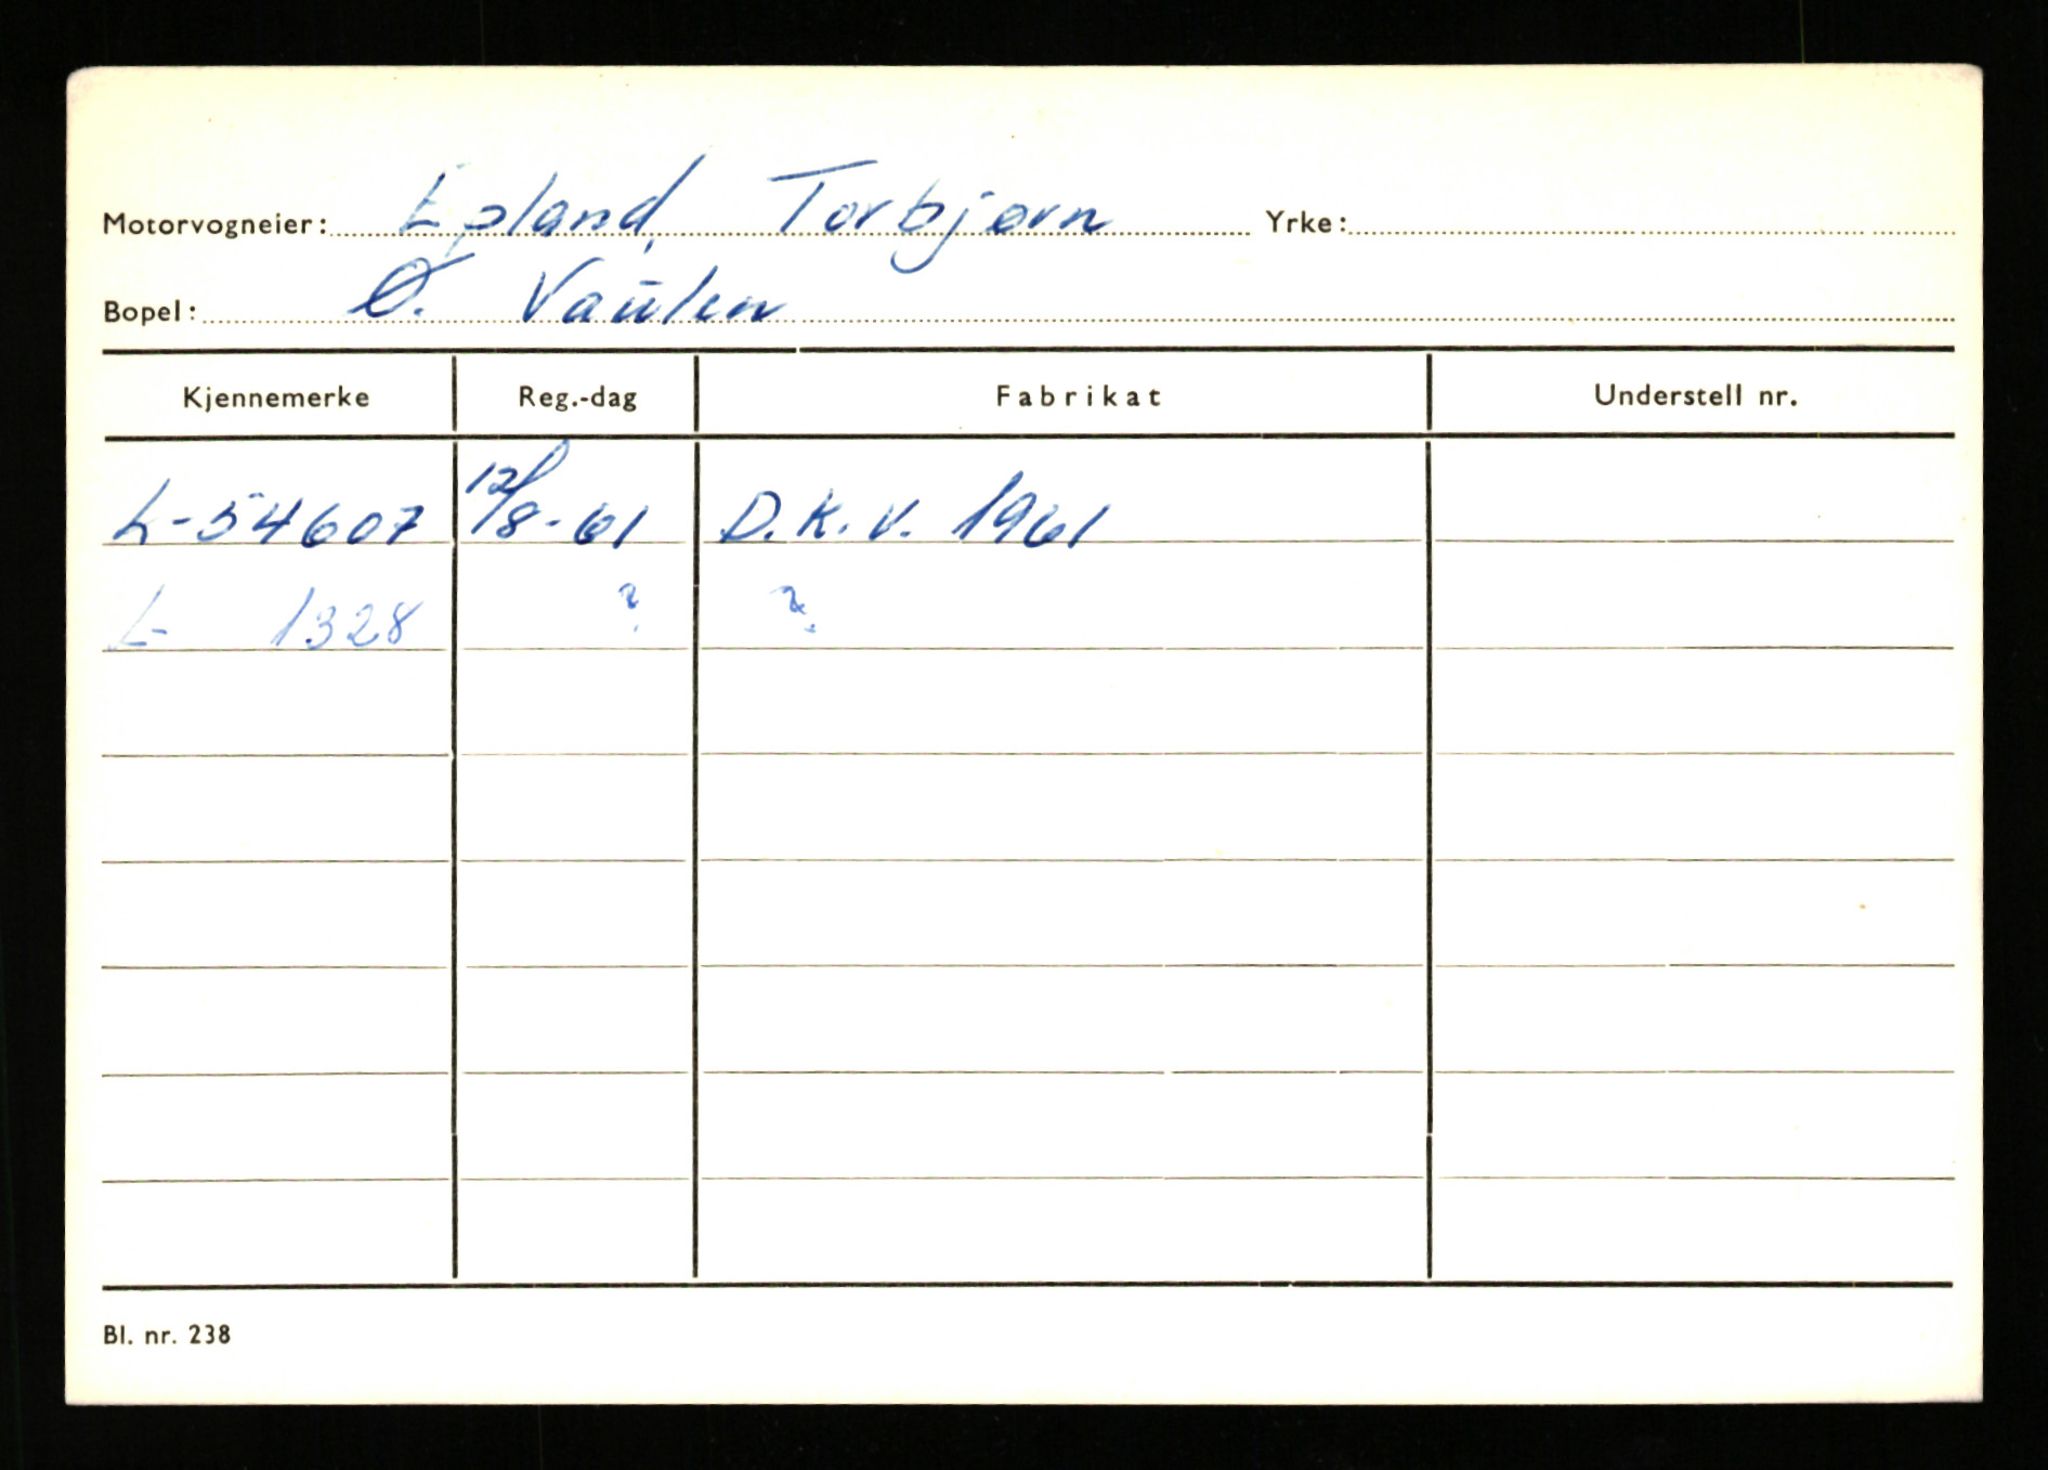 Motorvogneier: Epland, Torbjørn Yrke:
Bopel: Ø. Vaulen
Kjennemerke Reg.-dag Fabrikat Understell nr.
L-54607 12/8-61 D.K.V. 1961
L- 1328 ? ?
Bl. nr. 238